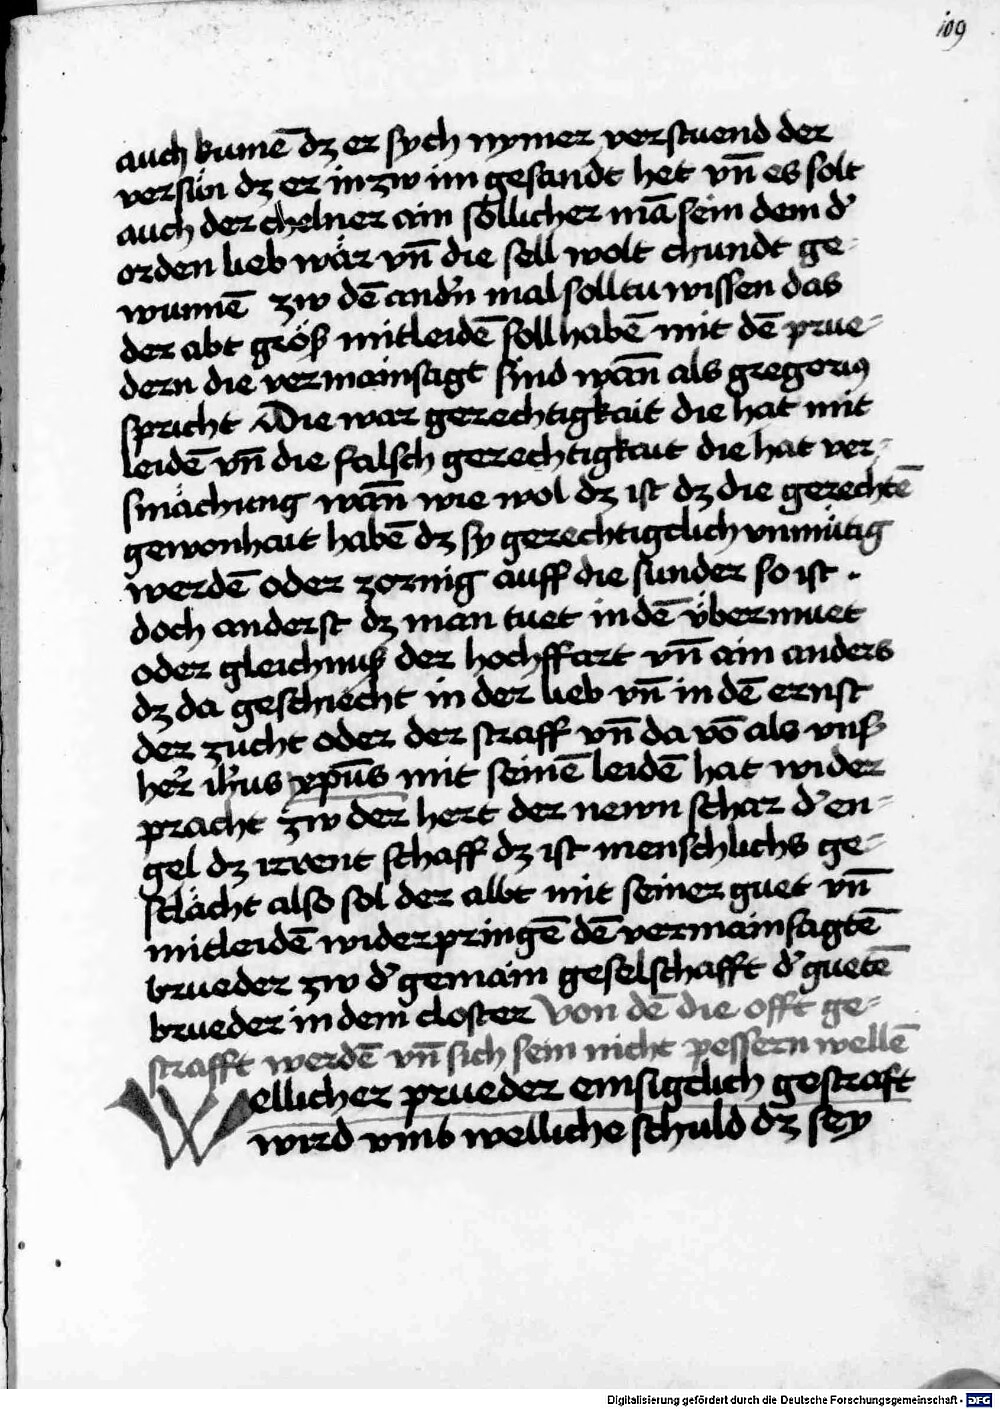 109
auch kumē dz er sych nymer verstuend der
versün dz er in zw im gesandt het vn̄ es solt
auch der chelner ain söllicher mā sein dem d'
orden lieb wär vn̄ die sell wolt chundt ge-
wunnē zw dē and'n mal solltu wissen das
der abt gröss mitleidē soll habē mit dē prue-
dern die vermainsagt sind wan̄ als gregorius
spricht Die war gerechtigkait die hat mit
leidē vn̄ die falsch gerechtigkait die hat ver-
smächung wan̄ wie wol dz ist dz die gerechtē
gewonhait habē dz sy gerechtigclich vnmütig
werdē oder zornig auff die sunder so ist .
doch anderst dz man tuet in dē übermuet
oder gleichnuss der hochffart vn̄ ain anders
dz da geschiecht in der lieb vn̄ in dē ernst
der zucht oder der straff vn̄ da vō als vnss
her̄ ih'us xp̄us mit seinē leidē hat wider
pracht zw der hert der newn schar d' en-
gel dz irrent schaff dz ist menschlichs ge-
sclächt also sol der albt mit seiner guet vn̄
mitleidē widerpringē dē vermainsagtē
brueder zw d' gemain geselschafft d' guetē
brueder in dem closter Von dē die offt ge-
strafft werdē vn̄ sich sein nicht pessern wellē
Wellicher prueder emsigclich gestraft
wird vmb welliche schuld dz sey
Digitalisierung gefördert durch die Deutsche Forschungsgemeinschaft - DFG